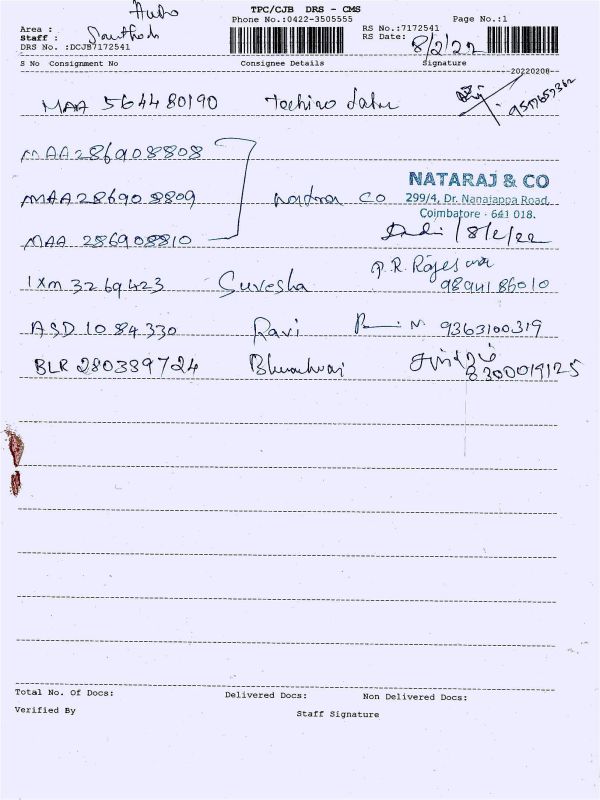 TPC/CJB DRS - CMS
Phone No.:0422-3505555
Page No.:1
Area :
Staff : Santhosh
DRS No. :DCJB7172541
RS No.:7172541
RS Date: 8/2/22
S No Consignment No Consignee Details Signature
20220208
MAA 564480190
MAA286908808
NATARAJ & CO
MAA286908809 CO 299/4, Dr. Nanajappa Road,
Coimbatore - 641 018.
MAA 286908810 /8/2/22
P.R. Rajeswari
IXM 3269423 Suresha 9894186010
ASD 1084330 Ravi 9363100319
BLR 280389724 8300019125
Total No. Of Docs: Delivered Docs: Non Delivered Docs:
Verified By Staff Signature